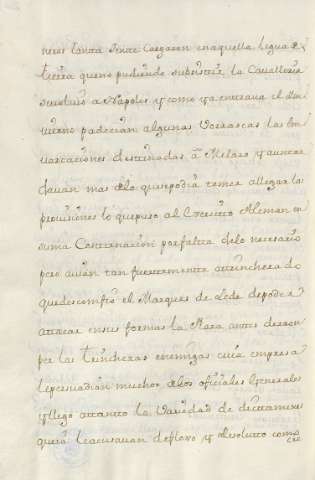 tanta Gente Cargaron en aquella legua de
tierra que no pudiendo subsistir la Cavalleria
se retiró a Napoles y como ya entrava el
vierno padecian algunas Vorrascas las Em
varcaciones destinadas a Melaso y
davan mas delo que podia temer allegar las
provisiones lo que puso al Exercito Aleman en
suma Consternacion por falta delo necesario
pero avian tan fuertemente atrincherado
que descompto el Marques de Lede de poder
attacar en sus formas la Plaza antes de rom
per las trincheras enemigas cuia empresa
le persuadian muchos delos ofiziales Generales
y llegó attanto la Variedad de dictamenes
que aun le acusavan de floxo y Resoluto como